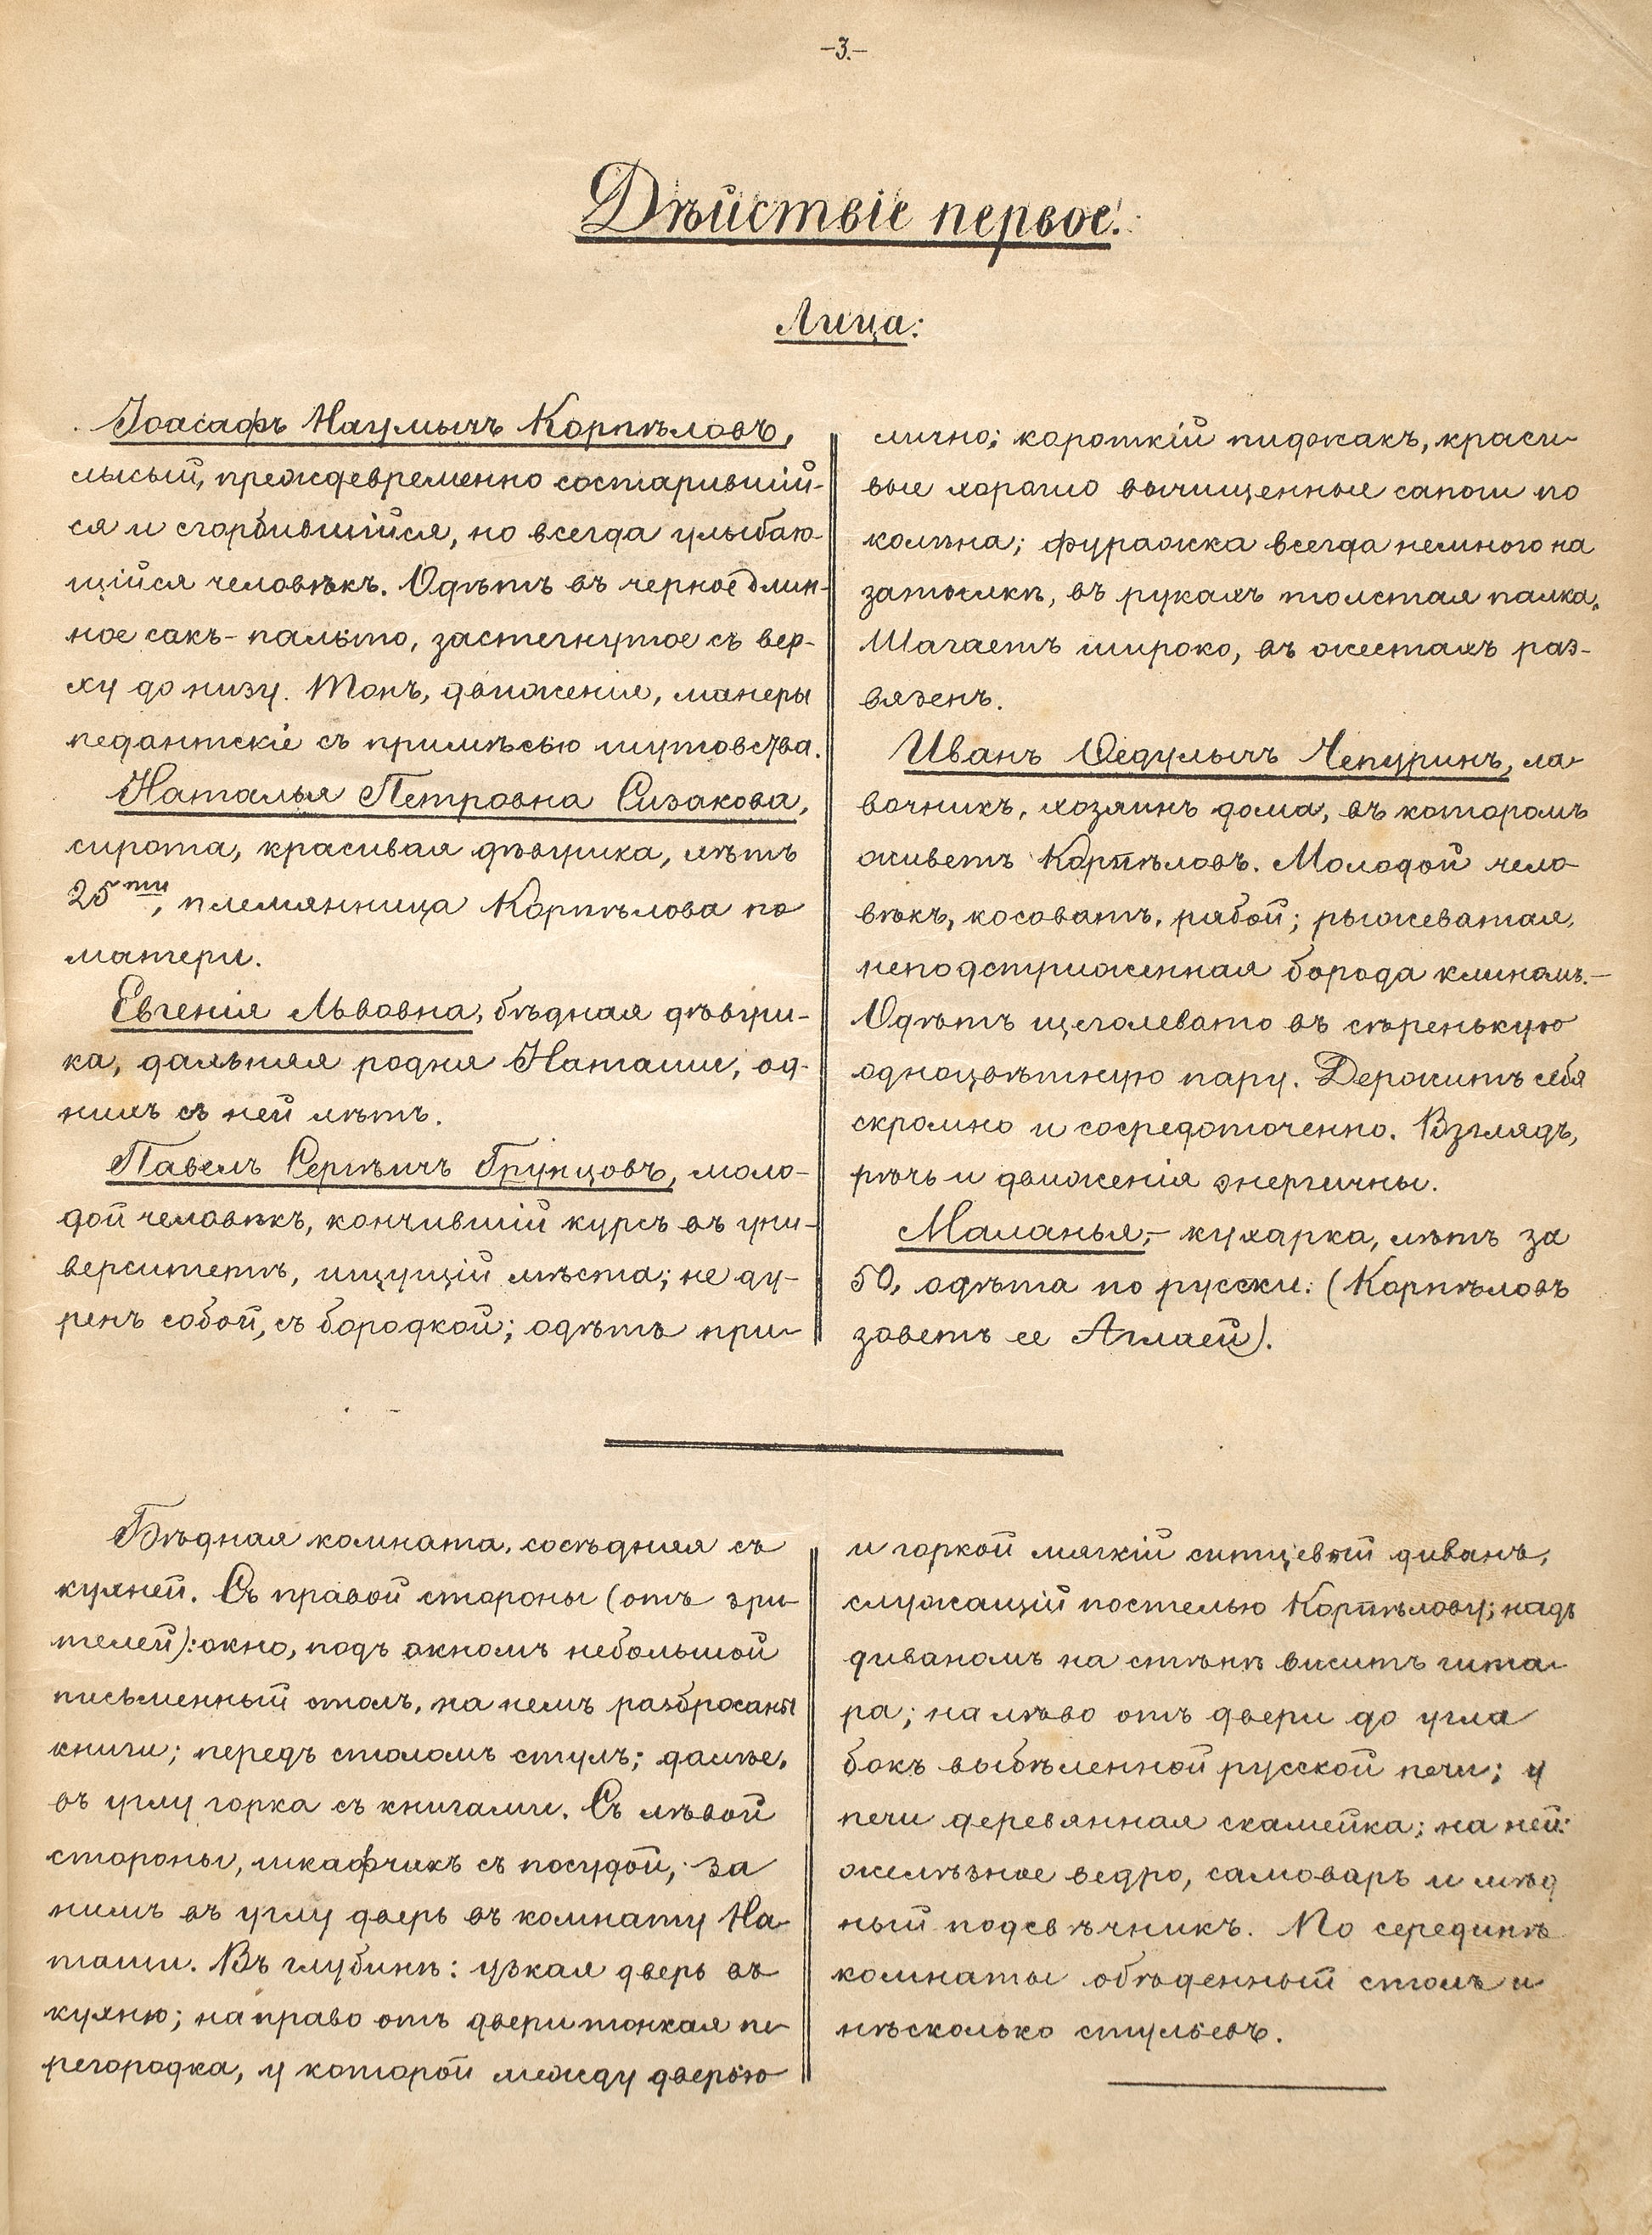 -3.-
Дѣйствіе первое.
Лица:
Іоасафъ Наумычъ Корпѣловъ,
лысый, преждевременно состарившій-
ся и сгорбившійся, но всегда улыбаю-
щійся человѣкъ. Одѣтъ въ черное длин-
ное сакъ-пальто, застегнутое съ вер-
ху до низу. Тонъ, движенія, манеры
педантскіе съ примѣсью шутовства.
Наталья Петровна Сизакова,
сирота, красивая дѣвушка, лѣтъ
25ти, племянница Корпѣлова по
матери.
Евгенія Львовна, бѣдная дѣвуш-
ка, дальняя родня Наташи, од-
нихъ съ ней лѣтъ.
Павелъ Сергѣичъ Грунцовъ, моло-
дой человѣкъ, кончившій курсъ въ уни-
верситетѣ, ищущій мѣста; не ду-
ренъ собой, съ бородкой; одѣтъ при-
лично; короткій пиджакъ, краси-
вые хорошо вычищенные сапоги по
колѣна; фуражка всегда немного на
затылкѣ, въ рукахъ толстая палка.
Шагаетъ широко, въ жестахъ раз-
вязенъ.
Иванъ Ѳедулычъ Чепуринъ, ла-
вочникъ, хозяинъ дома, въ которомъ
живетъ Корпѣловъ. Молодой чело-
вѣкъ, косоватъ, рябой; рыжеватая,
неподстриженная борода клиномъ.-
Одѣтъ щеголевато въ сѣренькую
одноцвѣтную пару. Держитъ себя
скромно и сосредоточенно. Взглядъ,
рѣчь и движенія энергичны.
Маланья,- кухарка, лѣтъ за
50, одѣта по русски. (Корпѣловъ
зоветъ ее Аглаей).
Бѣдная комната, сосѣдняя съ
кухней. Съ правой стороны (отъ зри-
телей): окно, подъ окномъ небольшой
письменный столъ, на немъ разбросаны
книги; передъ столомъ стулъ; далѣе,
въ углу горка съ книгами. Съ лѣвой
стороны, шкафчикъ съ посудой; за
нимъ въ углу дверь въ комнату На-
таши. Въ глубинѣ: узкая дверь въ
кухню; на право отъ двери тонкая пе-
регородка, у которой между дверью
и горкой мягкій ситцевый диванъ,
служащій постелью Корпѣлову; надъ
диваномъ на стѣнѣ виситъ гита-
ра; на лѣво отъ двери до угла
бокъ выбѣленной русской печи; у
печи деревянная скамейка; на ней:
желѣзное ведро, самоваръ и мѣд
ный подсвѣчникъ. По серединѣ
комнаты обѣденный столъ и
нѣсколько стульевъ.